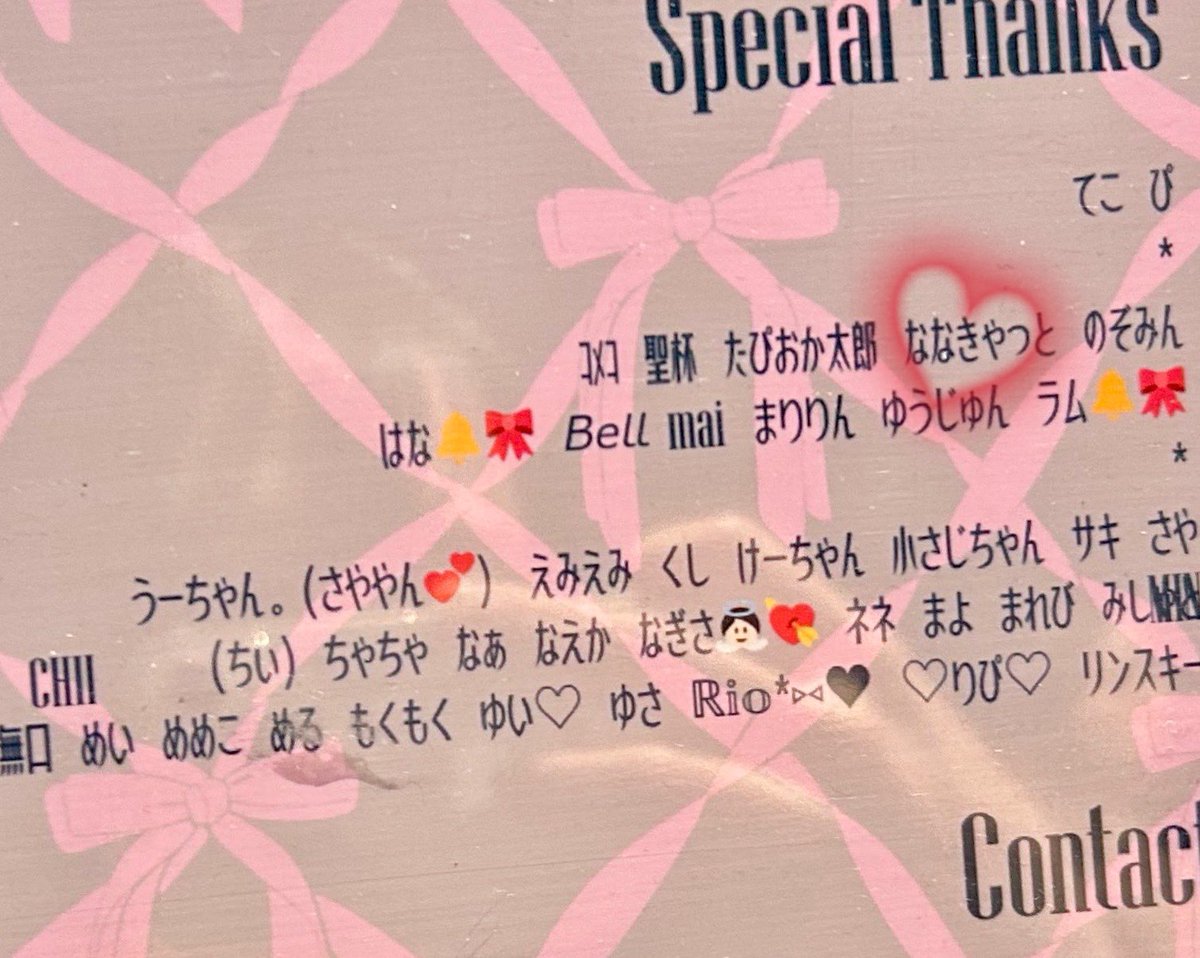 Special Thanks
てこ ぴ
*
ｺﾒｺ 聖杯 たぴおか太郎 ななきゃっと のぞみん
はな🔔🎀 Bell mai まりりん ゆうじゅん ラム🔔🎀
*
うーちゃん。(さややん💕) えみえみ くし けーちゃん 小さじちゃん サキ さや
CHII (ちい) ちゃちゃ なぁ なえか なぎさ👼🏻💘 ネネ まよ まれび みし
無口 めい めめこ める もくもく ゆい♡ ゆさ ℝ𝕚𝕠*⋈♥ ♡りぴ♡ リンスキー
Contact